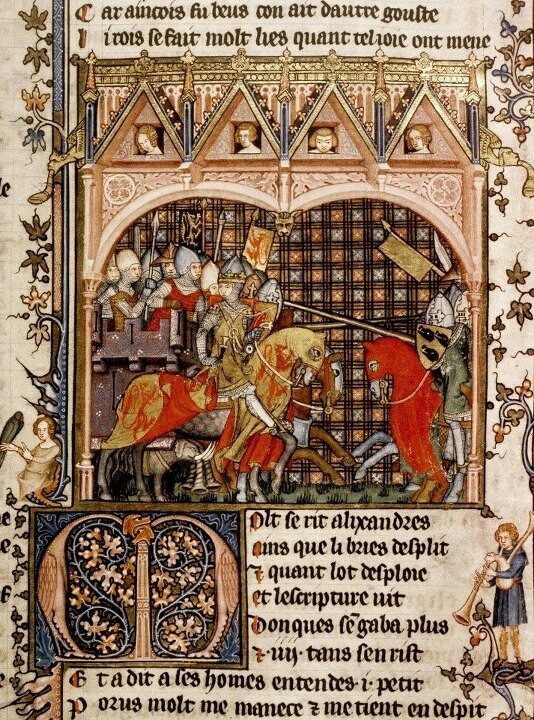 Car aincois fu beus con ait dautre gouste
Li rois se fait molt lies quant tel ioie ont mene
Molt se rit alixandres
ains que li bries desplit
⁊ quant lot desploie
et lescripture uit
Donques sen gaba plus
⁊ .iiij. tans sen rist
Et a dit a ses homes entendes .i. petit
Porus molt me manece ⁊ me tient en despit